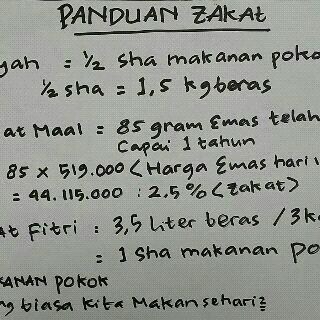 PANDUAN ZAKAt
yah = ½ sha makanan poko
½ sha = 1,5 kg beras
at Maal = 85 gram Emas telah
Capai 1 tahun
85 x 519.000 < Harga Emas hari i
= 44.115.000 : 2,5 % < Zakat >
At Fitri : 3,5 Liter beras / 3k
= 1 Sha makanan po
KANAN pokok
ng biasa Kita Makan sehari²